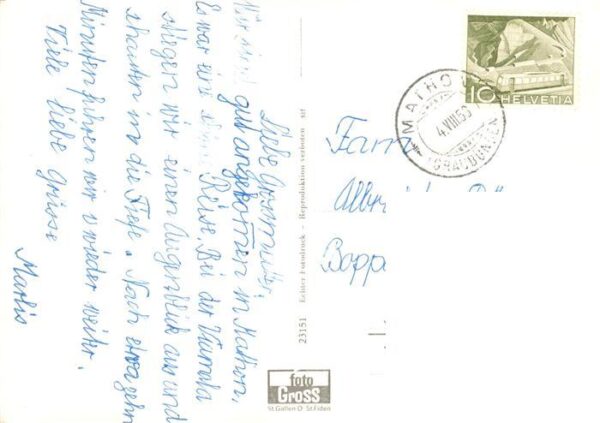 Liebe Grossmutter,
Wir sind gut angekommen in Mathon,
Es war eine Reise. Bei der Viamala
stiegen wir einen Augenblick aus und
schauten in die Tiefe. Nach etwa zehn
Minuten fuhren wir wieder weiter.
Viele liebe Grüsse
Marlis
23151 Echter Fotodruck – Reproduktion verboten
foto
Gross
St. Gallen O · St. Fiden
10 HELVETIA
MATHON
(GRAUBÜNDEN)
Fam
Albr
Bopp